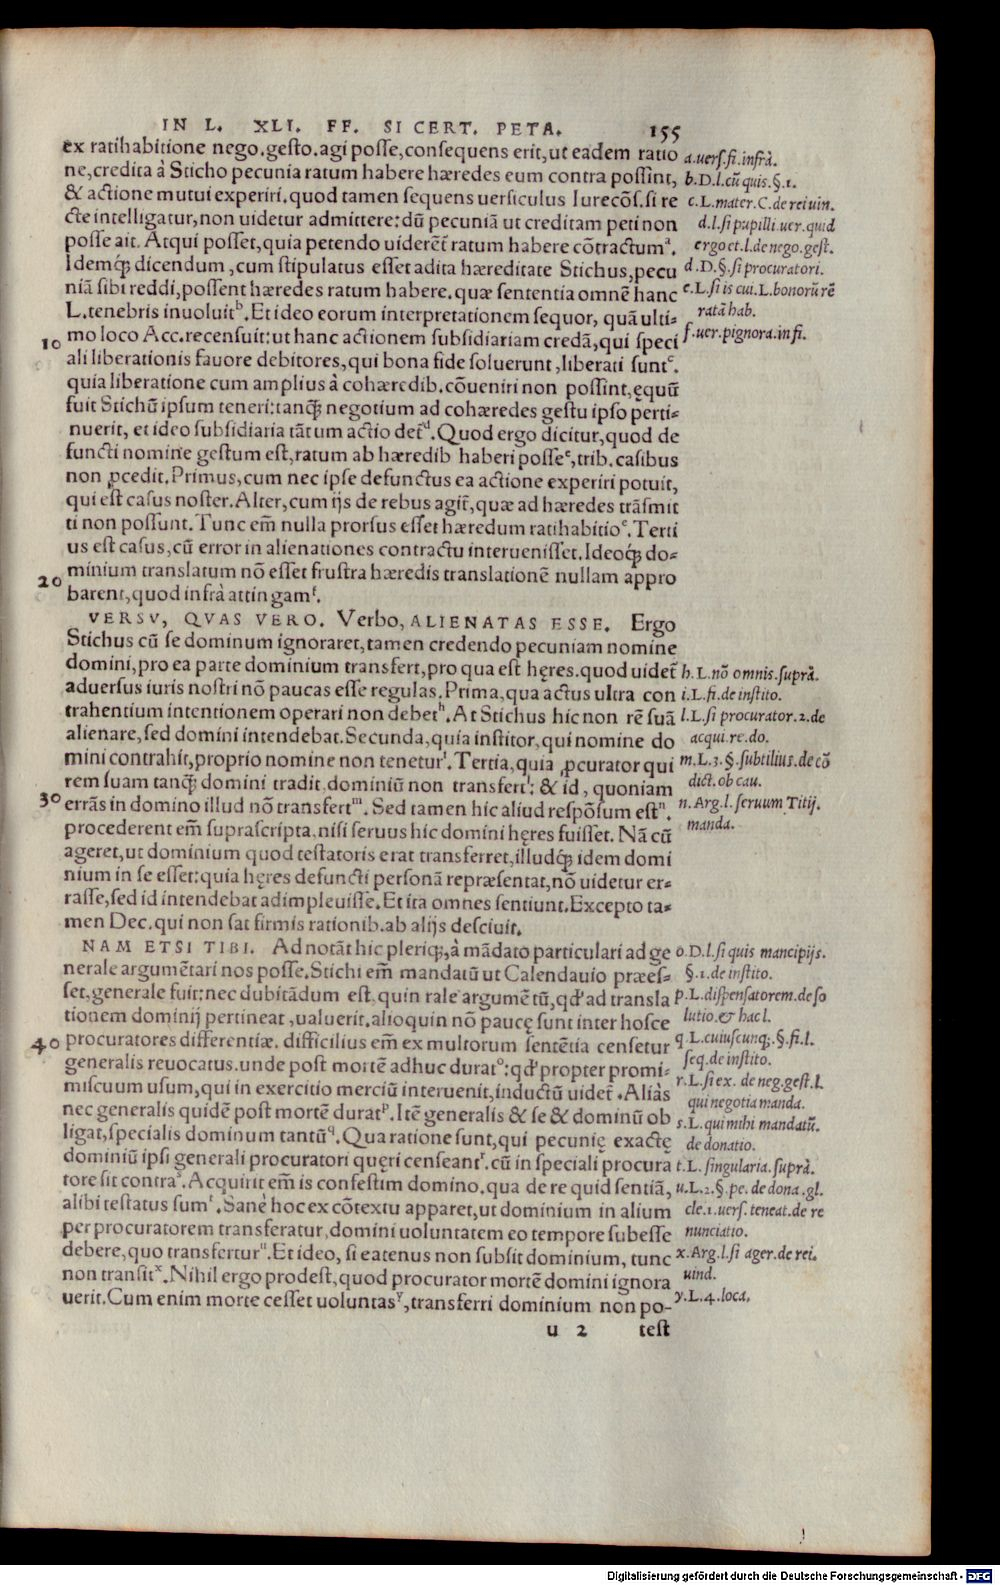 IN L. XLI. FF. SI CERT. PETA. 155
ex ratihabitione nego.gesto.agi posse,consequens erit,ut eadem ratio
ne,credita à Sticho pecunia ratum habere hæredes eum contra possint,
& actione mutui experiri.quod tamen sequens uersiculus Iurecōs.si re
cte intelligatur,non uidetur admittere:dū pecuniā ut creditam peti non
posse ait. Atqui posset,quia petendo uiderēt̄ ratum habere cōtractumᵃ.
Idemq́; dicendum,cum stipulatus esset adita hæreditate Stichus,pecu
niā sibi reddi,possent hæredes ratum habere.quæ sententia omnē hanc
L.tenebris inuoluitᵇ.Et ideo eorum interpretationem sequor, quā ulti-
10 mo loco Acc.recensuit:ut hanc actionem subsidiariam credā,qui speci
ali liberationis fauore debitores,qui bona fide soluerunt,liberati suntᶜ.
quia liberatione cum amplius à cohæredib.cōueniri non possint,ęquū
fuit Stichū ipsum teneri:tanq́; negotium ad cohæredes gestu ipso perti-
nuerit, et ideo subsidiaria tātum actio det̄ᵈ.Quod ergo dicitur,quod de
functi nomine gestum est,ratum ab hæredib haberi posseᵉ,trib.casibus
non ꝓcedit.Primus,cum nec ipse defunctus ea actione experiri potuit,
qui est casus noster.Alter,cum ijs de rebus agit̄,quæ ad hæredes trāsmit
ti non possunt.Tunc em̄ nulla prorsus esset hæredum ratihabitioᵉ.Terti
us est casus,cū error in alienationes contractu interuenisset.Ideoq́; do-
20 minium translatum nō esset frustra hæredis translationē nullam appro
barent,quod infrà attingamᶠ.
VERSV, QVAS VERO. Verbo, ALIENATAS ESSE. Ergo
Stichus cū se dominum ignoraret,tamen credendo pecuniam nomine
domini,pro ea parte dominium transfert,pro qua est hęres.quod uidet̄
aduersus iuris nostri nō paucas esse regulas.Prima,qua actus ultra con
trahentium intentionem operari non debetʰ.At Stichus hic non rē suā
alienare,sed domini intendebat.Secunda,quia institor,qui nomine do
mini contrahit,proprio nomine non teneturⁱ.Tertia,quia ꝓcurator qui
rem suam tanq́; domini tradit,dominiū non transfertˡ: & id, quoniam
30 errās in domino illud nō transfertᵐ.Sed tamen hic aliud respōsum estⁿ.
procederent em̄ suprascripta,nisi seruus hic domini hęres fuisset. Nā cū
ageret,ut dominium quod testatoris erat transferret,illudq́; idem domi
nium in se esset:quia hęres defuncti personā repræsentat,nō uidetur er-
rasse,sed id intendebat adimpleuisse.Et ita omnes sentiunt.Excepto ta-
men Dec.qui non sat firmis rationib.ab alijs desciuit.
NAM ETSI TIBI. Ad notāt hic pleriq;,à mādato particulari ad ge
nerale argumētari nos posse.Stichi em̄ mandatū ut Calendauio præes-
set,generale fuit:nec dubitādum est,quin tale argumētū,qd' ad transla
tionem dominij pertineat,ualuerit.alioquin nō paucę sunt inter hosce
40 procuratores differentiæ.difficilius em̄ ex multorum sentētia censetur
generalis reuocatus.unde post mortē adhuc duratᵒ:qd' propter promi-
miscuum usum,qui in exercitio merciū interuenit,inductū uidet̄.Aliàs
nec generalis quidē post mortē duratᵖ.Itē generalis & se & dominū ob
ligat,specialis dominum tantū^q.Qua ratione sunt,qui pecunię exactę
dominiū ipsi generali procuratori quęri censeantʳ.cū in speciali procura
tore sit contraˢ.Acquirit em̄ is confestim domino.qua de re quid sentiā,
alibi testatus sumᵗ.Sanè hoc ex cōtextu apparet,ut dominium in alium
per procuratorem transferatur,domini uoluntatem eo tempore subesse
debere,quo transferturᵘ.Et ideo, si eatenus non subsit dominium, tunc
non transitˣ.Nihil ergo prodest,quod procurator mortē domini ignora
uerit.Cum enim morte cesset uoluntasʸ,transferri dominium non po-
u 2 test
a.uers.fi.infrà.
b.D.l.cū quis.§.1.
c.L.mater.C.de rei uin.
d.l.si pupilli.uer.quid
ergo et.l.de nego.gest.
d.D.§.si procuratori.
e.L.si is cui.L.bonorū rē
ratā hab.
f.uer.pignora.in fi.
h.L.nō omnis.suprà.
i.L.fi.de instito.
l.L.si procurator.2.de
acqui.re.do.
m.L.3.§.subtilius.de cō
dict.ob cau.
n.Arg.l.seruum Titij.
manda.
o.D.l.si quis mancipijs.
§.1.de instito.
p.L.dispensatorem.de so
lutio.& hac l.
q.L.cuiuscunq;.§.fi.l.
seq.de instito.
r.L.si ex.de neg.gest.l.
qui negotia manda.
s.L.qui mihi mandatū.
de donatio.
t.L.singularia.suprà.
u.L.2.§.pe.de dona.gl.
cle.1.uers.teneat.de re
nunciatio.
x.Arg.l.si ager.de rei.
uind.
y.L.4.loca.
Digitalisierung gefördert durch die Deutsche Forschungsgemeinschaft - DFG